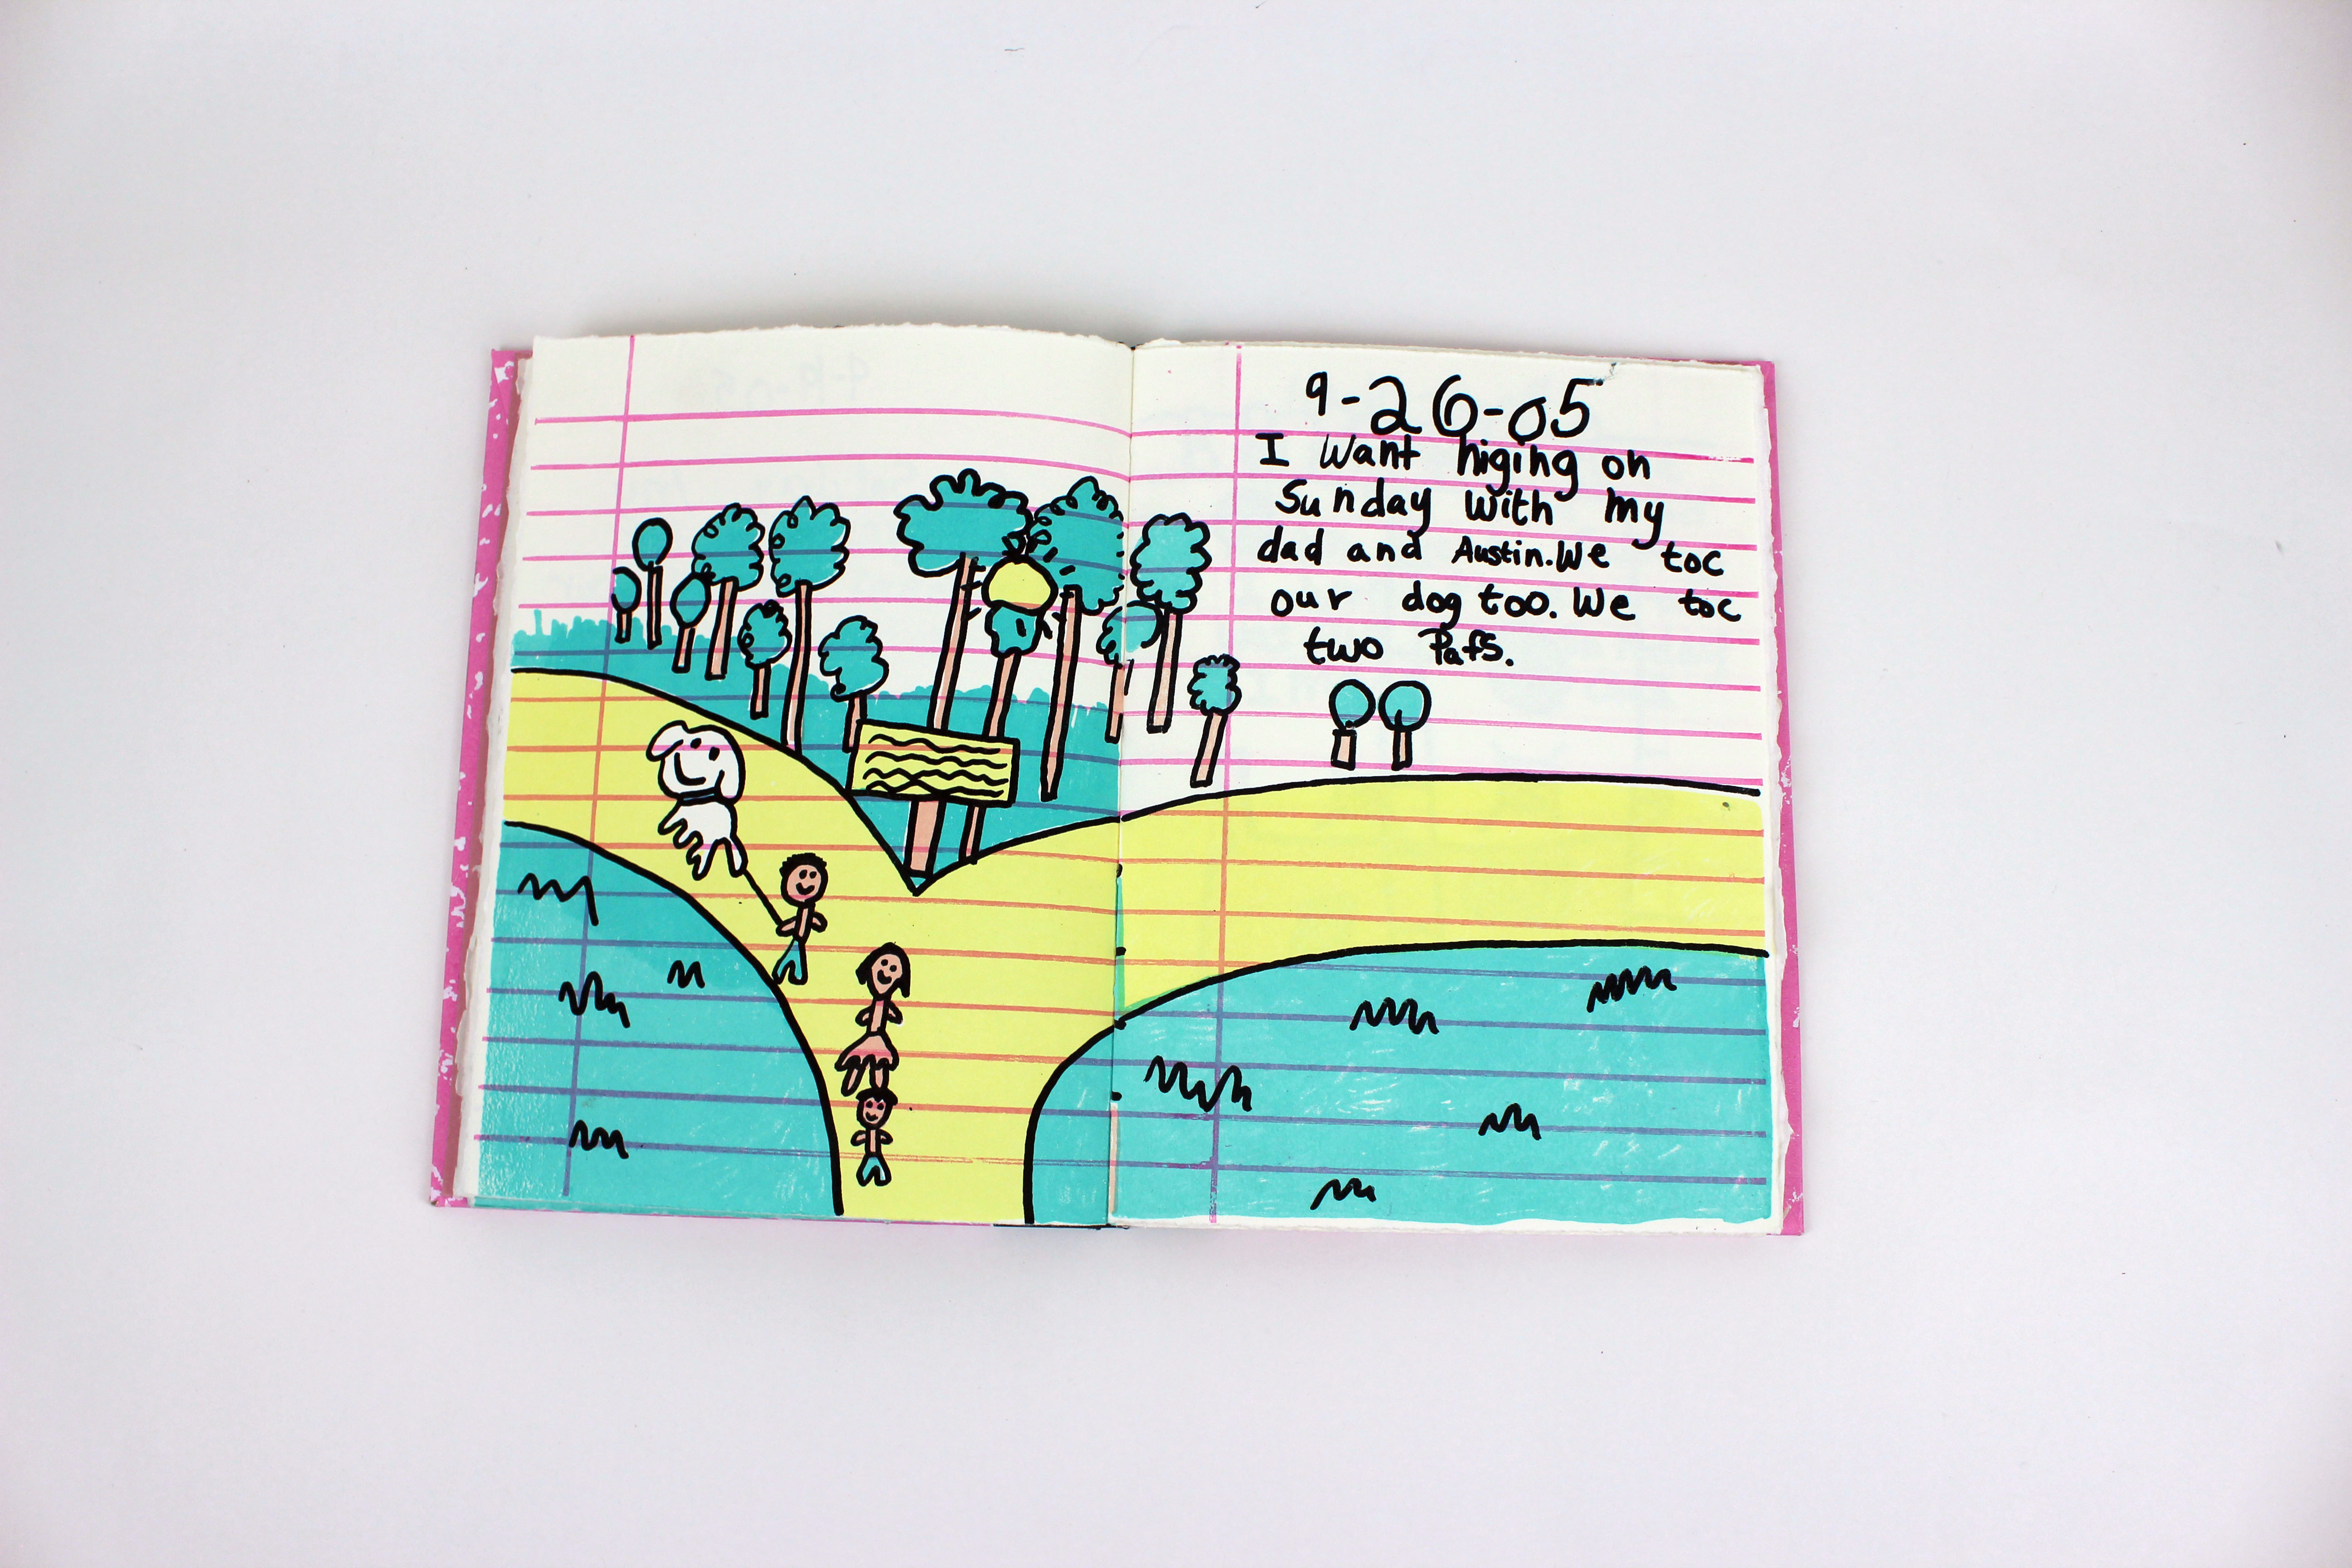 9-26-05
I want higing on
Sunday with my
dad and Austin. We toc
our dog too. We toc
two Pafs.